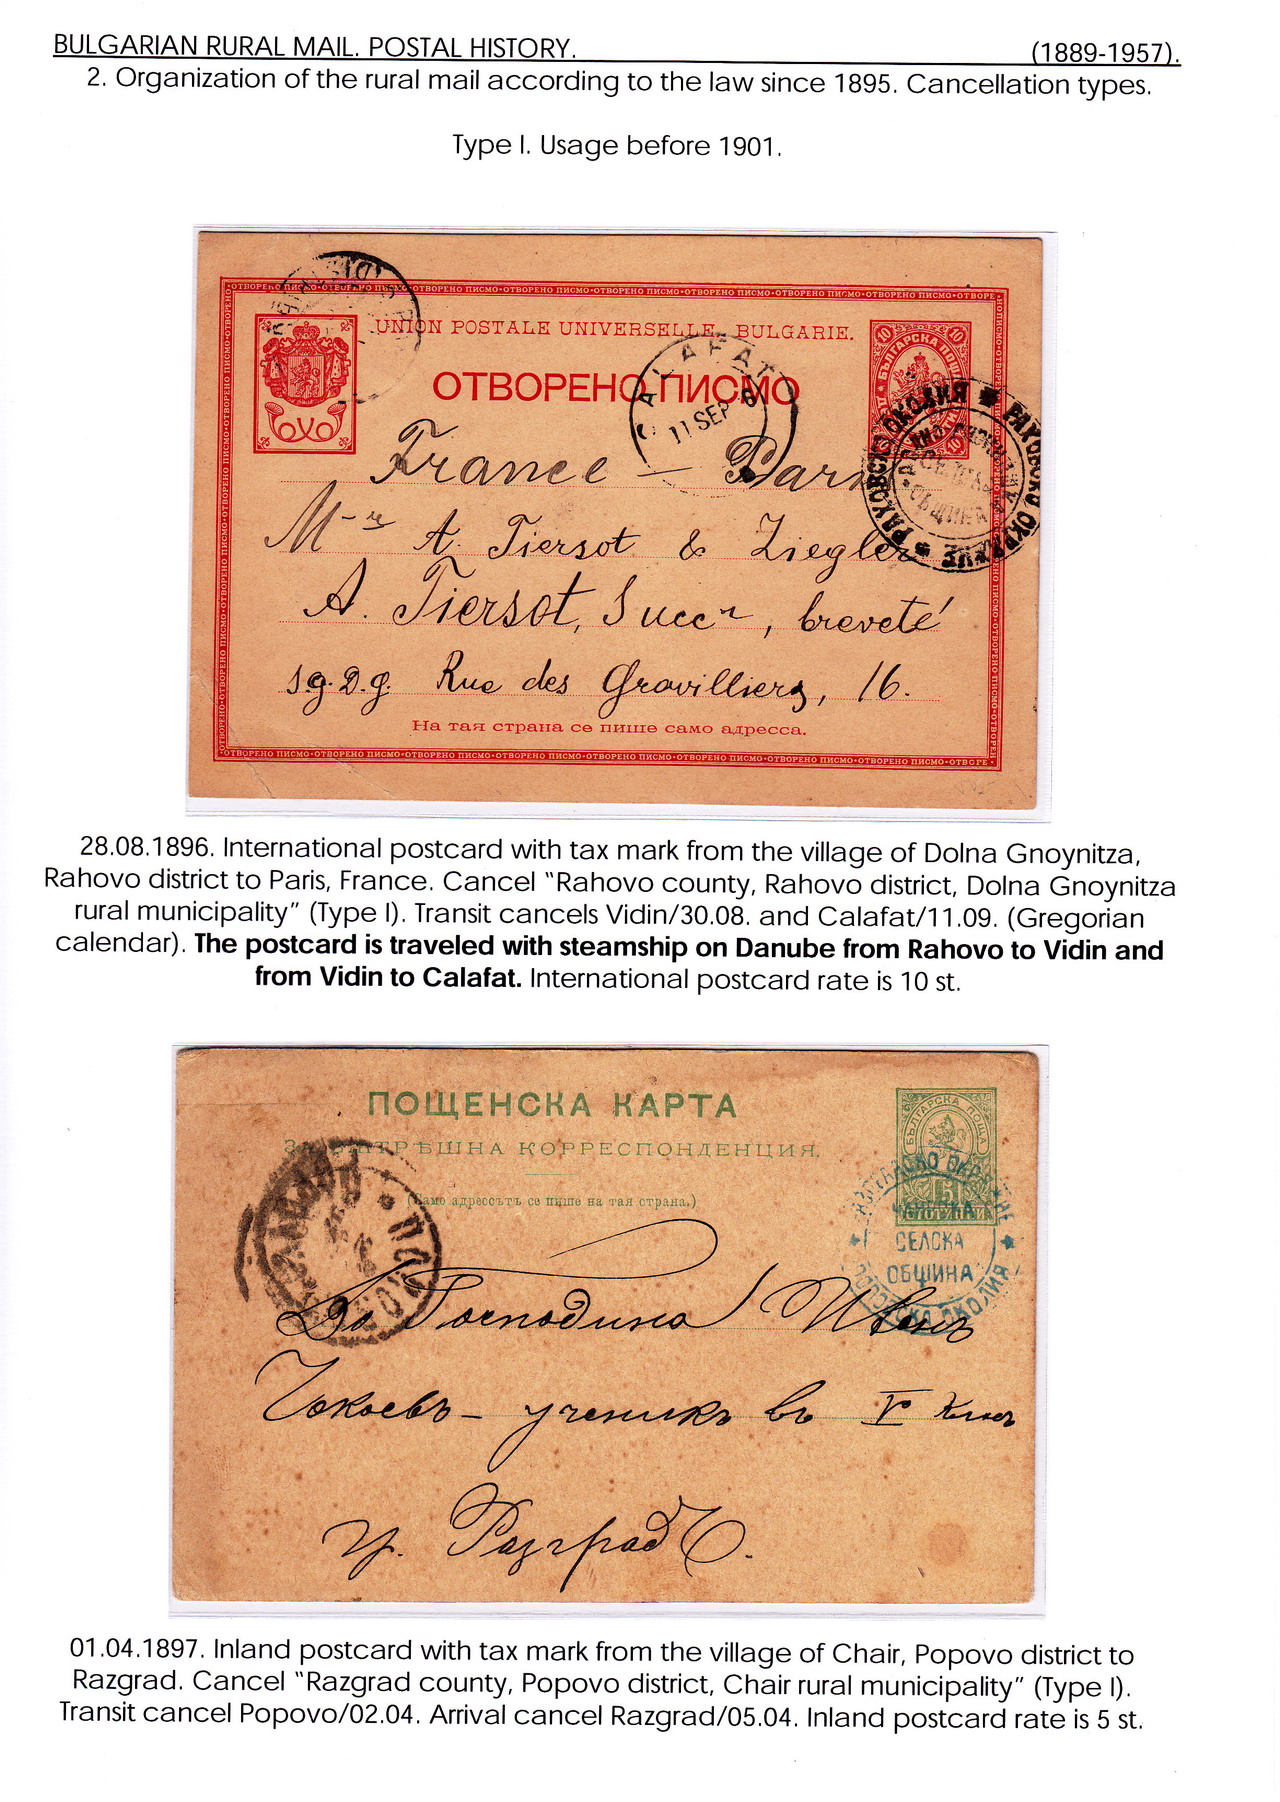 BULGARIAN RURAL MAIL. POSTAL HISTORY. (1889-1957).
2. Organization of the rural mail according to the law since 1895. Cancellation types.
Type I. Usage before 1901.
UNION POSTALE UNIVERSELLE. BULGARIE.
ОТВОРЕНО ПИСМО
CALAFAT
11 SEP
БЪЛГАРСКА ПОЩА
10
РАХОВСКО ОКРЪЖИЕ
РАХОВСКО ОКОЛИЯ
France — Paris
M-r A. Tiersot & Ziegler
A. Tiersot, Succr, breveté
s.g.D.g. Rue des Gravilliers, 16.
На тая страна се пише само адресса.
ОТВОРЕНО ПИСМО·ОТВОРЕНО ПИСМО·ОТВОРЕНО ПИСМО·ОТВОРЕНО ПИСМО·ОТВОРЕНО ПИСМО·ОТВОРЕНО ПИСМО
28.08.1896. International postcard with tax mark from the village of Dolna Gnoynitza,
Rahovo district to Paris, France. Cancel "Rahovo county, Rahovo district, Dolna Gnoynitza
rural municipality" (Type I). Transit cancels Vidin/30.08. and Calafat/11.09. (Gregorian
calendar). The postcard is traveled with steamship on Danube from Rahovo to Vidin and
from Vidin to Calafat. International postcard rate is 10 st.
ПОЩЕНСКА КАРТА
ЗА ВЪТРѢШНА КОРРЕСПОНДЕНЦИЯ.
(Само адрессътъ се пише на тая страна.)
БЪЛГАРСКА ПОЩА
5
СЕЛСКА
ОБЩИНА
ПОПОВСКА ОКОЛИЯ
До Господина Иванъ
Чокоевъ – ученикъ въ V клас
гр. Разградъ.
01.04.1897. Inland postcard with tax mark from the village of Chair, Popovo district to
Razgrad. Cancel "Razgrad county, Popovo district, Chair rural municipality" (Type I).
Transit cancel Popovo/02.04. Arrival cancel Razgrad/05.04. Inland postcard rate is 5 st.